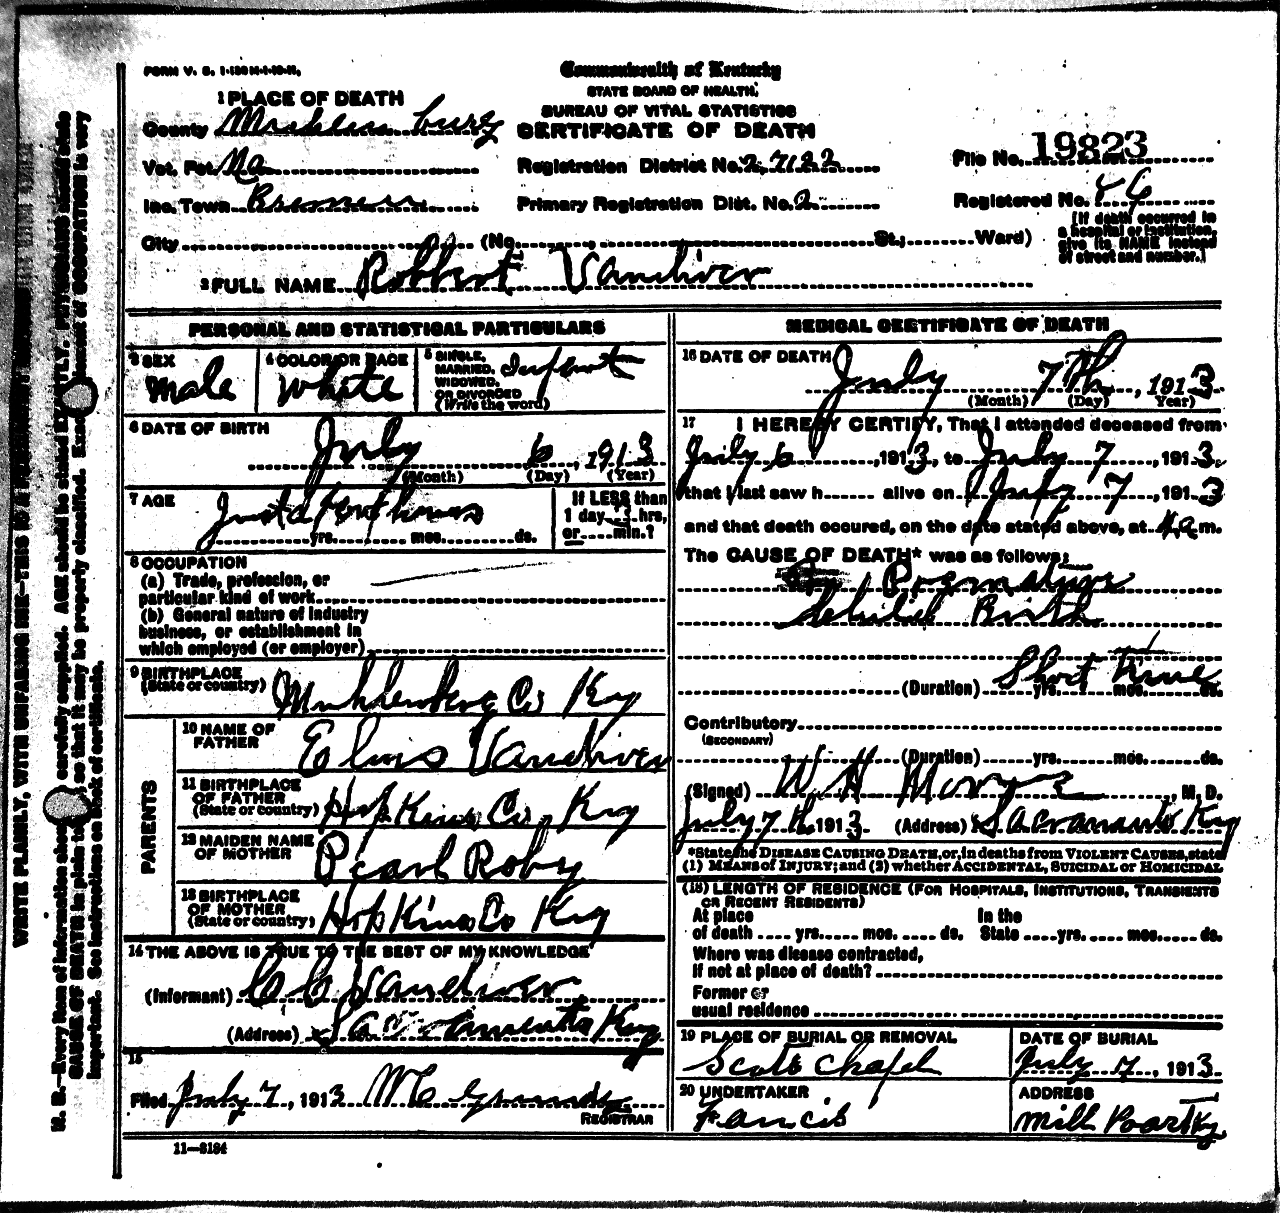 FORM V. S. 1-
Commonwealth of Kentucky
STATE BOARD OF HEALTH.
BUREAU OF VITAL STATISTICS
CERTIFICATE OF DEATH
1 PLACE OF DEATH
County
Vot. Pct. No
Inc. Town Bremen
City (No. St.; Ward)
Registration District No.
Primary Registration Dist. No. 2
File No. 19823
Registered No.
[If death occurred in
a hospital or institution,
give its NAME instead
of street and number.]
2 FULL NAME Robbert Vandiver
PERSONAL AND STATISTICAL PARTICULARS
3 SEX
male
4 COLOR OR RACE
white
5 SINGLE,
MARRIED,
WIDOWED,
OR DIVORCED
(Write the word)
Infant
6 DATE OF BIRTH
July 6, 1913
(Month) (Day) (Year)
7 AGE
Just a few hours
yrs. mos. ds.
If LESS than
1 day, hrs,
or min.?
8 OCCUPATION
(a) Trade, profession, or
particular kind of work
(b) General nature of industry
business, or establishment in
which employed (or employer)
9 BIRTHPLACE
(State or country) Muhlenberg Co Ky
PARENTS
10 NAME OF
FATHER Elms Vandiver
11 BIRTHPLACE
OF FATHER
(State or country) Hopkins Co Ky
12 MAIDEN NAME
OF MOTHER Pearl Roby
13 BIRTHPLACE
OF MOTHER
(State or country) Hopkins Co Ky
14 THE ABOVE IS TRUE TO THE BEST OF MY KNOWLEDGE
(Informant) C C Vandiver
(Address) Sacramento Ky
15
Filed July 7, 1913
REGISTRAR
11—3184
MEDICAL CERTIFICATE OF DEATH
16 DATE OF DEATH
July 7th, 1913
(Month) (Day) (Year)
17 I HEREBY CERTIFY, That I attended deceased from
July 6, 1913, to July 7, 1913.
that I last saw h alive on July 7, 1913
and that death occured, on the date stated above, at m.
The CAUSE OF DEATH* was as follows:
Premature
Birth
Short time
(Duration) yrs. mos. ds.
Contributory
(SECONDARY)
(Duration) yrs. mos. ds.
(Signed) W H , M. D.
July 7th 1913 (Address) Sacramento Ky
*State the DISEASE CAUSING DEATH, or, in deaths from VIOLENT CAUSES, state
(1) MEANS OF INJURY; and (2) whether ACCIDENTAL, SUICIDAL or HOMICIDAL
(18) LENGTH OF RESIDENCE (FOR HOSPITALS, INSTITUTIONS, TRANSIENTS
OR RECENT RESIDENTS)
At place
of death yrs. mos. ds.
In the
State yrs. mos. ds.
Where was disease contracted,
if not at place of death?
Former or
usual residence
19 PLACE OF BURIAL OR REMOVAL
Scotts Chapel
DATE OF BURIAL
July 7, 1913
20 UNDERTAKER
Francis
ADDRESS
Mill Poart Ky
WRITE PLAINLY, WITH UNFADING INK—THIS IS A PERMANENT RECORD
N. B.—Every item of information should be carefully supplied. AGE should be stated EXACTLY. PHYSICIANS should state
CAUSE OF DEATH in plain terms, so that it may be properly classified. Exact statement of OCCUPATION is very
important. See instructions on back of certificate.